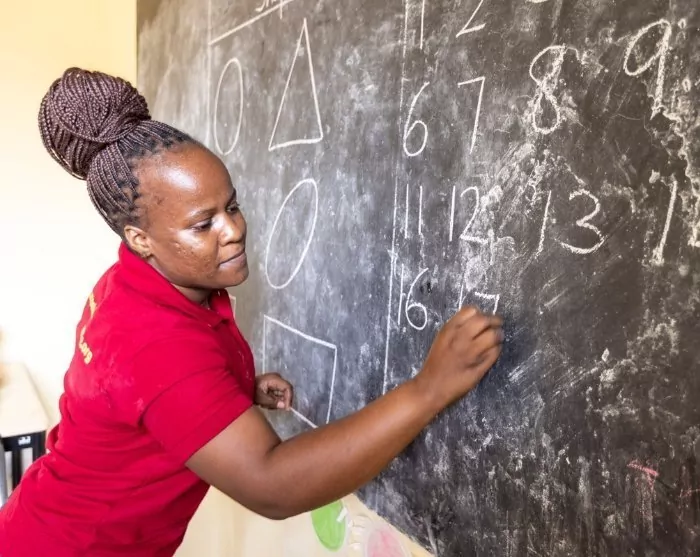 1 2
6 7 8 9
11 12 13 1
16 17